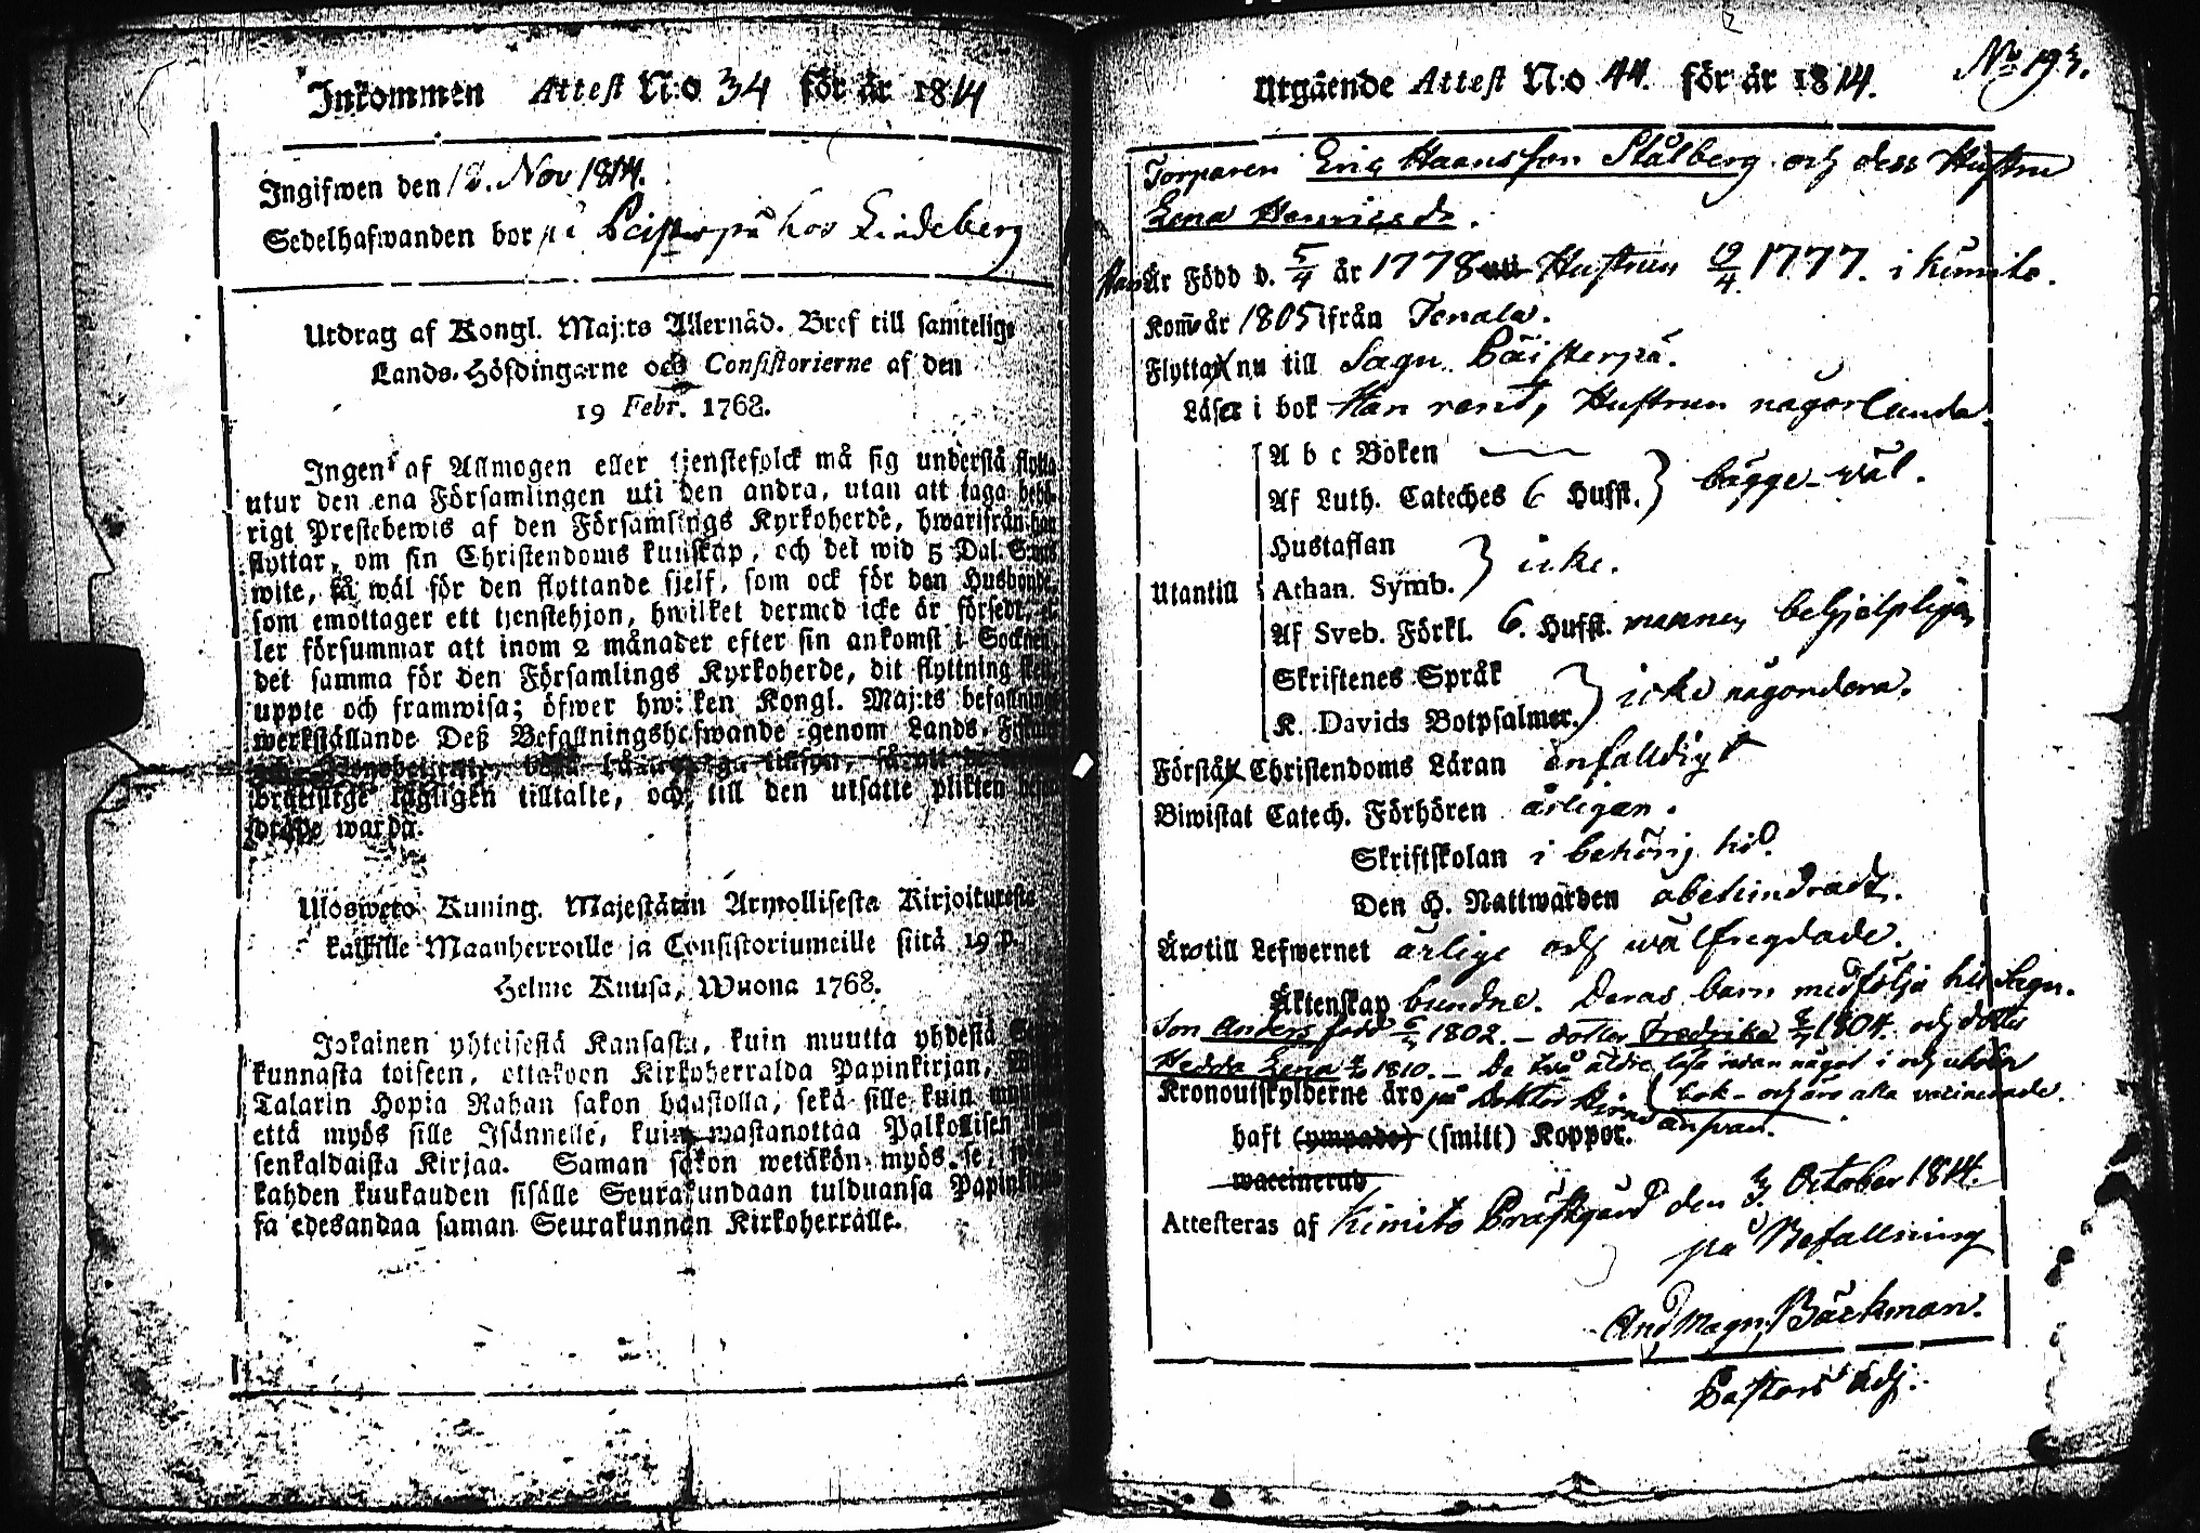 Inkommen Attest N:o 34 för år 1814
Ingifwen den 12. Nov 1814.
Sedelhafwanden bor på Peisterpä hos Lindeberg
Utdrag af Kongl. Maj:ts Allernåd. Bref till samtelige
Lands-Höfdingarne och Consistorierne af den
19 Febr. 1768.
Ingen af Allmogen eller tjenstefolck må sig understå flytta
utur den ena Församlingen uti den andra, utan att taga behö-
rigt Prestebewis af den Församlings Kyrkoherde, hwarifrån han
flyttar, om sin Christendoms kunskap, och det wid 5 Dal. S:mts
wite, så wäl för den flyttande sjelf, som ock för den Husbonde,
som emottager ett tjenstehjon, hwilket dermed icke är försedt, el-
ler försummar att inom 2 månader efter sin ankomst i Socknen,
det samma för den Församlings Kyrkoherde, dit flyttning sker,
uppte och framwisa; öfwer hwilken Kongl. Maj:ts befallnings
werkställande Deß Befallningshafwande genom Lands-Fiscaler
tilsyn, så att de
lagligen tilltalte, och till den utsatte plikten
warda.
Ulosweto Kuning. Majestätin Armollisesta Kirjoituxesta
kaikille Maanherroille ja Consistoriumeille siitä 19 p.
Helme Kuusa, Wuona 1768.
Jokainen yhteisestä Kansasta, kuin muutta yhdestä Seu-
kunnasta toiseen, ottakoon Kirkoherralda Papinkirjan,
Talarin Hopia Rahan sakon haastolla, sekä sille, kuin muutta
että myös sille Isännelle, kuin wastanottaa Palkollisen
senkaldaista Kirjaa. Saman sakon wetäkön myös se,
kahden kuukauden sisälle Seurakundaan tulduansa Papinkirjan-
sa edesandaa saman Seurakunnan Kirkoherralle.
Utgående Attest N:o 44. för år 1814.
No 193.
Torparen Eric Hansson Stålberg och dess Hustru
Lena Henricsdr.
Han Är Född d. 5/4 år 1778 uti Hustrun 19/4 1777. i Kimito.
Kom̄o år 1805 ifrån Tenala.
Flytta nu till Sagu Päisterpä.
Läsa i bok Han rent, Hustrun någorlunda
A b c Boken
Af Luth. Cateches 6 Hufst. } bägge wäl.
Hustaflan
Utantill Athan. Symb. } icke.
Af Sveb. Förkl. 6. Hufst. mannen behjelpligen
Skriftenes Språk
K. Davids Botpsalmer. } icke någondera.
Förstå Christendoms Läran enfalldigt
Biwistat Catech. Förhören årligen.
Skriftskolan i behörig tid.
Den H. Nattwarden obehindradt.
Äro till Lefwernet ärlige och wälfregdade.
Äktenskap bundne. Deras barn medfölja till Sagu.
Son Anders född 1802. – dotter Fredrika 1804. och dotter
Hedda Lena 1810. – De två äldre läsa redan något i och utom
Kronoutskylderne äro på bok – och äro alla vaccinerade.
haft (ympade) (smitt) Koppor.
waccinerad
Attesteras af Kimito Prästgård den 3/ October 1814.
på Befallning
And. Magn. Bäckman.
Pastors Adj.